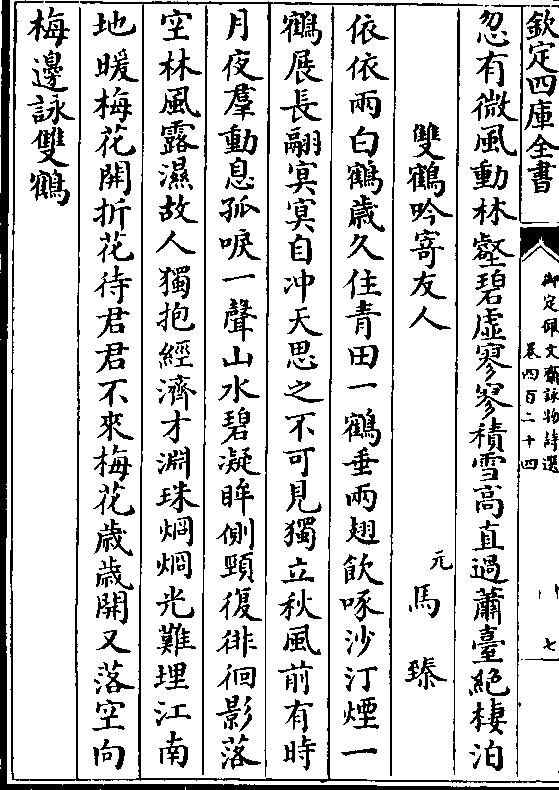 欽定四庫全書
御定佩文齋詠物詩選
卷四百二十四
七
忽有微風動林壑碧虛寥寥積雪高直過蕭臺絕棲泊
雙鶴吟寄友人
元
馬臻
依依兩白鶴歲久住青田一鶴垂兩翅飲啄沙汀煙一
鶴展長翮冥冥自冲天思之不可見獨立秋風前有時
月夜羣動息孤唳一聲山水碧凝眸側頸復徘徊影落
空林風露濕故人獨抱經濟才淵珠烱烱光難埋江南
地暖梅花開折花待君君不來梅花歲歲開又落空向
梅邊詠雙鶴